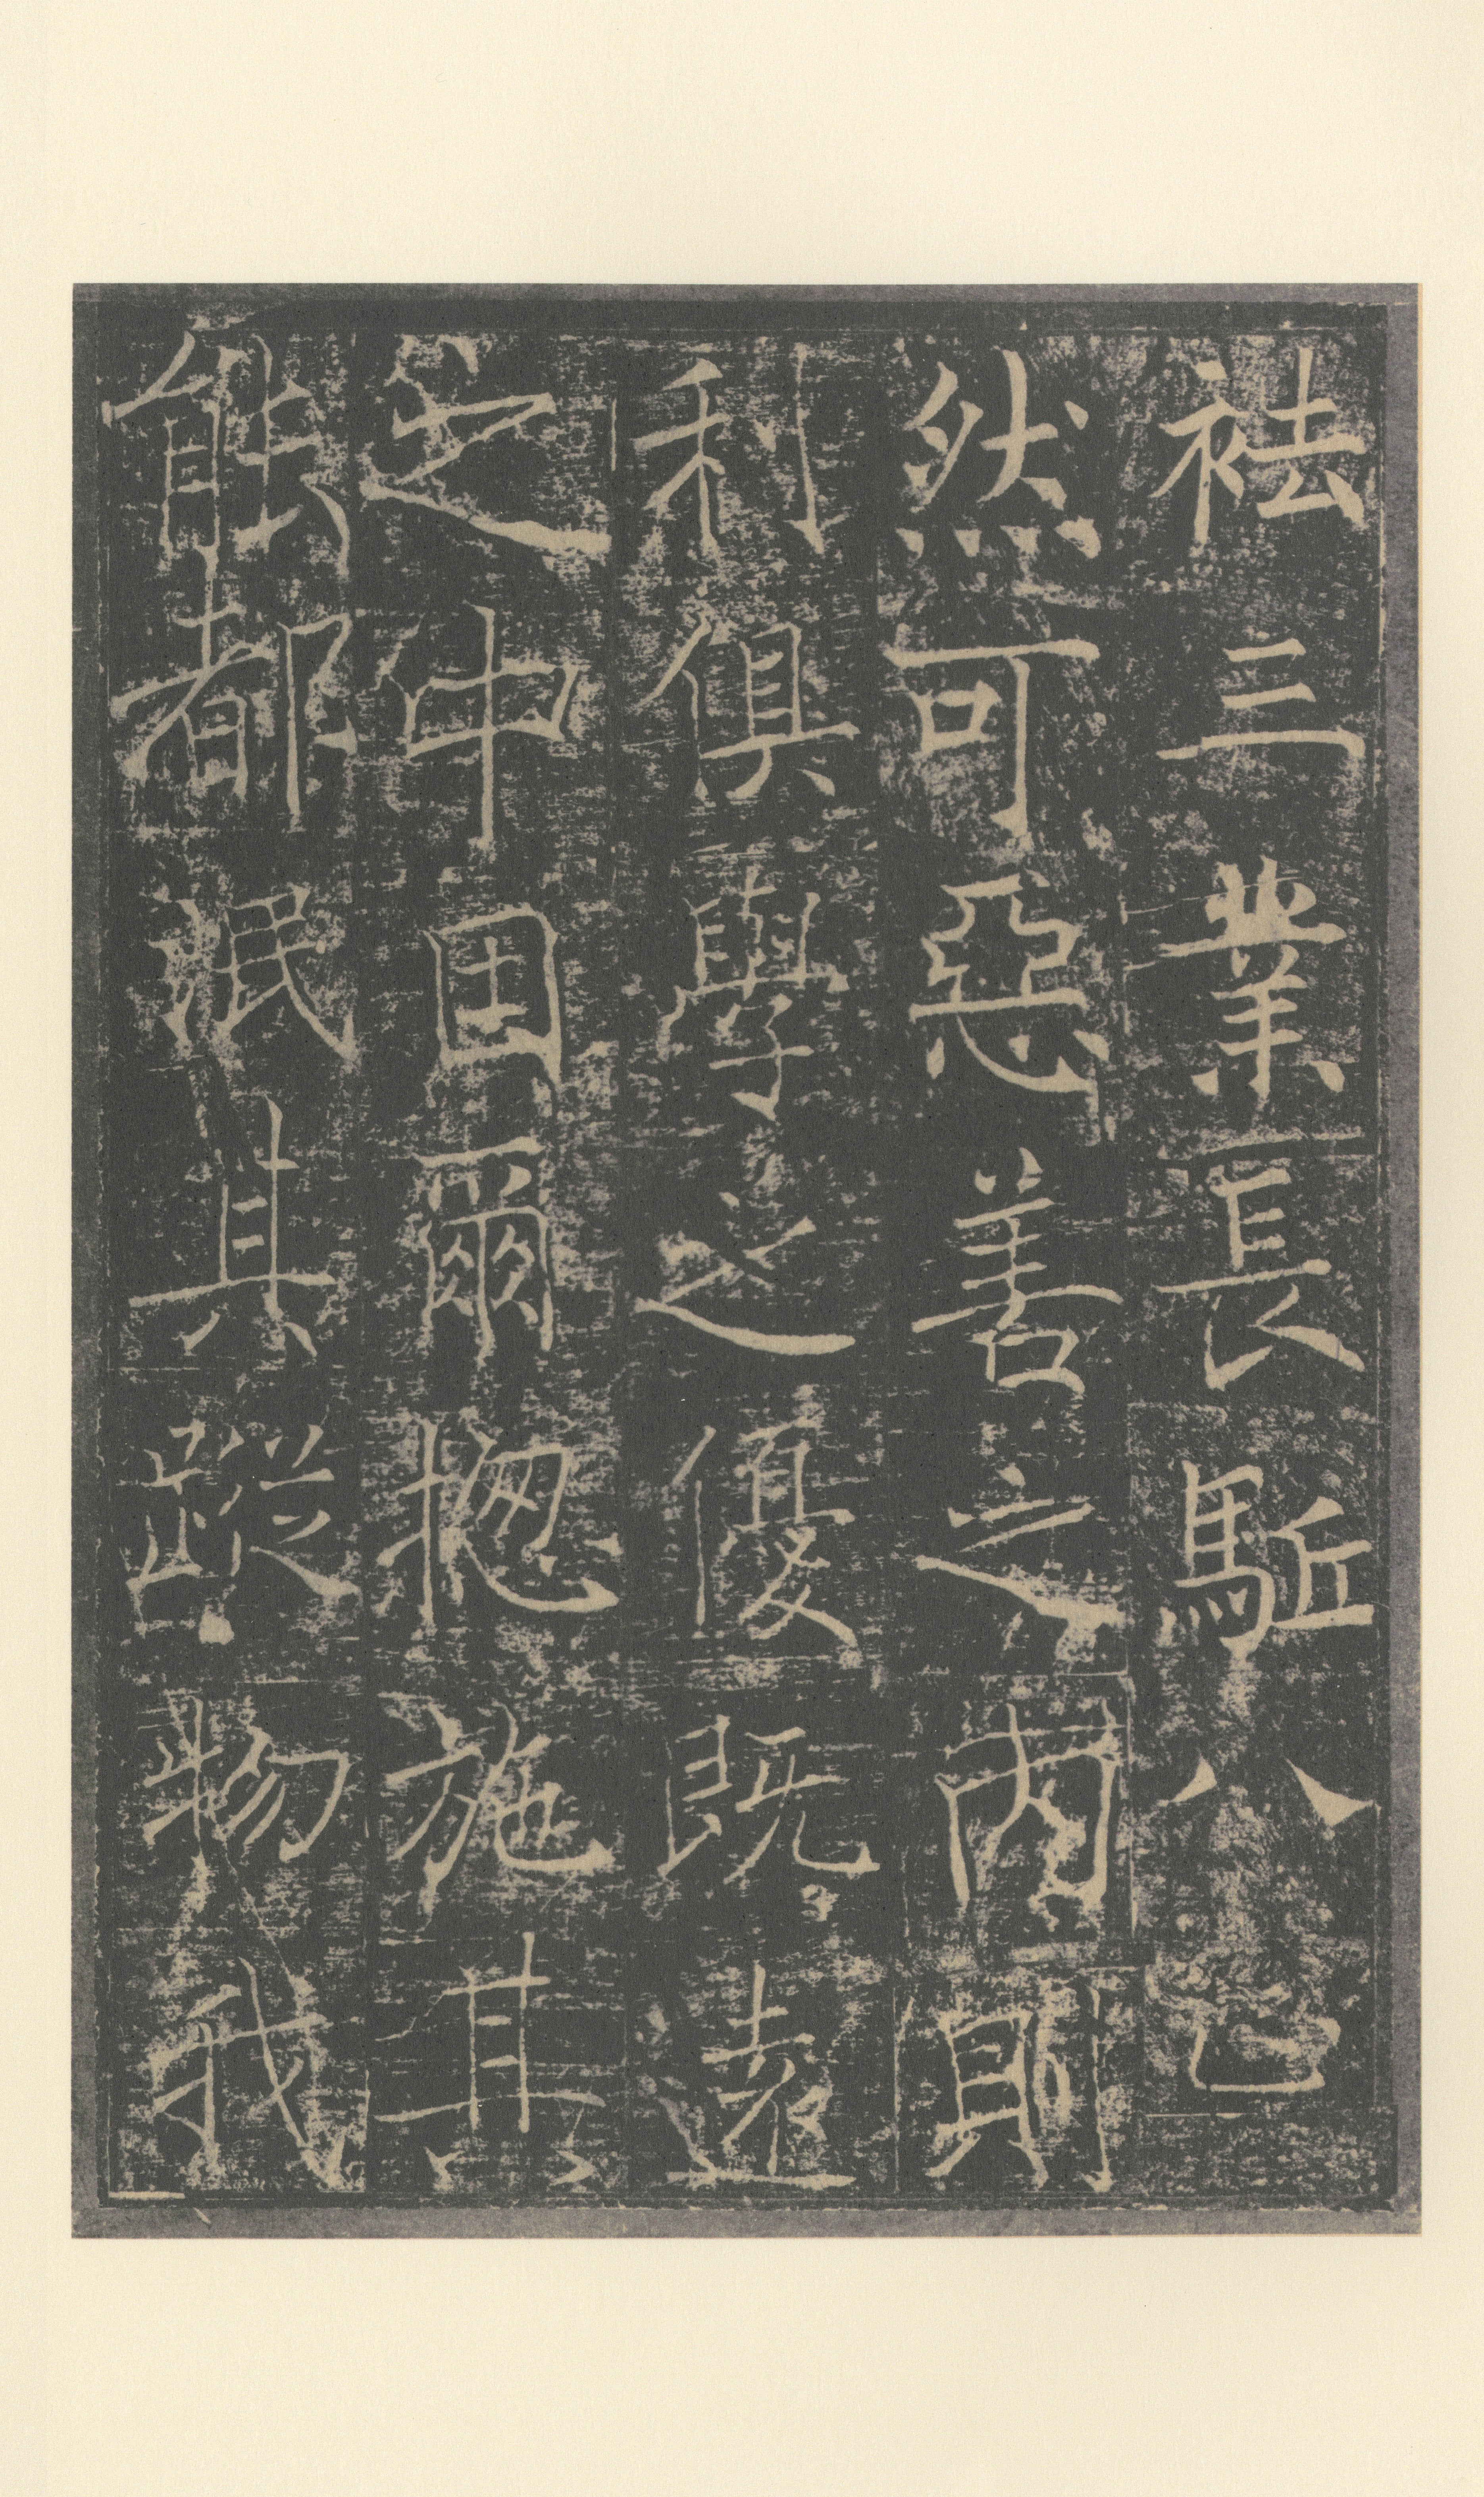 祛三業長駈八
然可惡善之兩則
利俱學之優既遠
之中因爾揔施其
能都泯其蹤物我